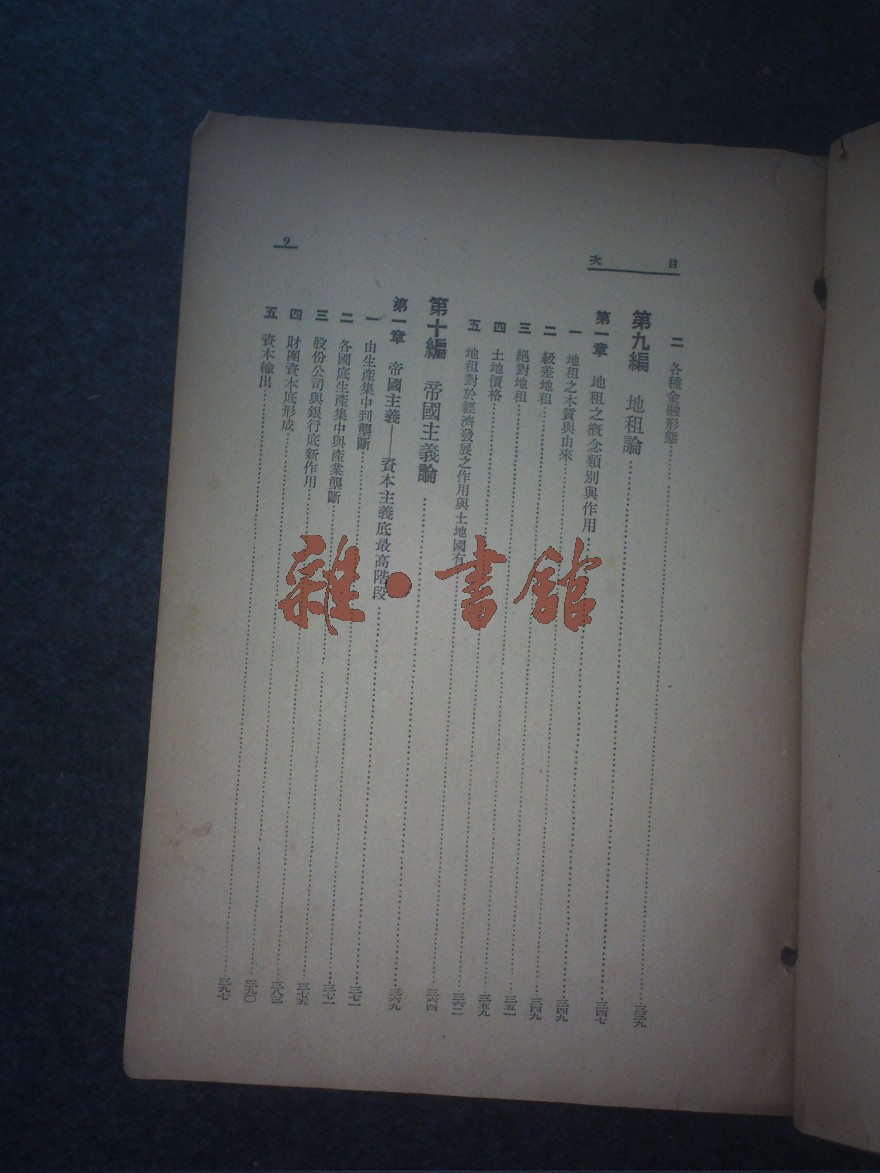 目次
二 各種金融形態……三三九
第九編 地租論……三四七
第一章 地租之概念類別與作用……三四九
一 地租之本質與由來……三四九
二 級差地租……三五一
三 絕對地租……三五九
四 土地價格……三六二
五 地租對於經濟發展之作用與土地國有……三六四
第十編 帝國主義論……三六九
第一章 帝國主義——資本主義底最高階段……三七一
一 由生產集中到壟斷……三七一
二 各國底生產集中與產業壟斷……三七五
三 股份公司與銀行底新作用……三八三
四 財團資本底形成……三九〇
五 資本輸出……三九七
9
雜·書館